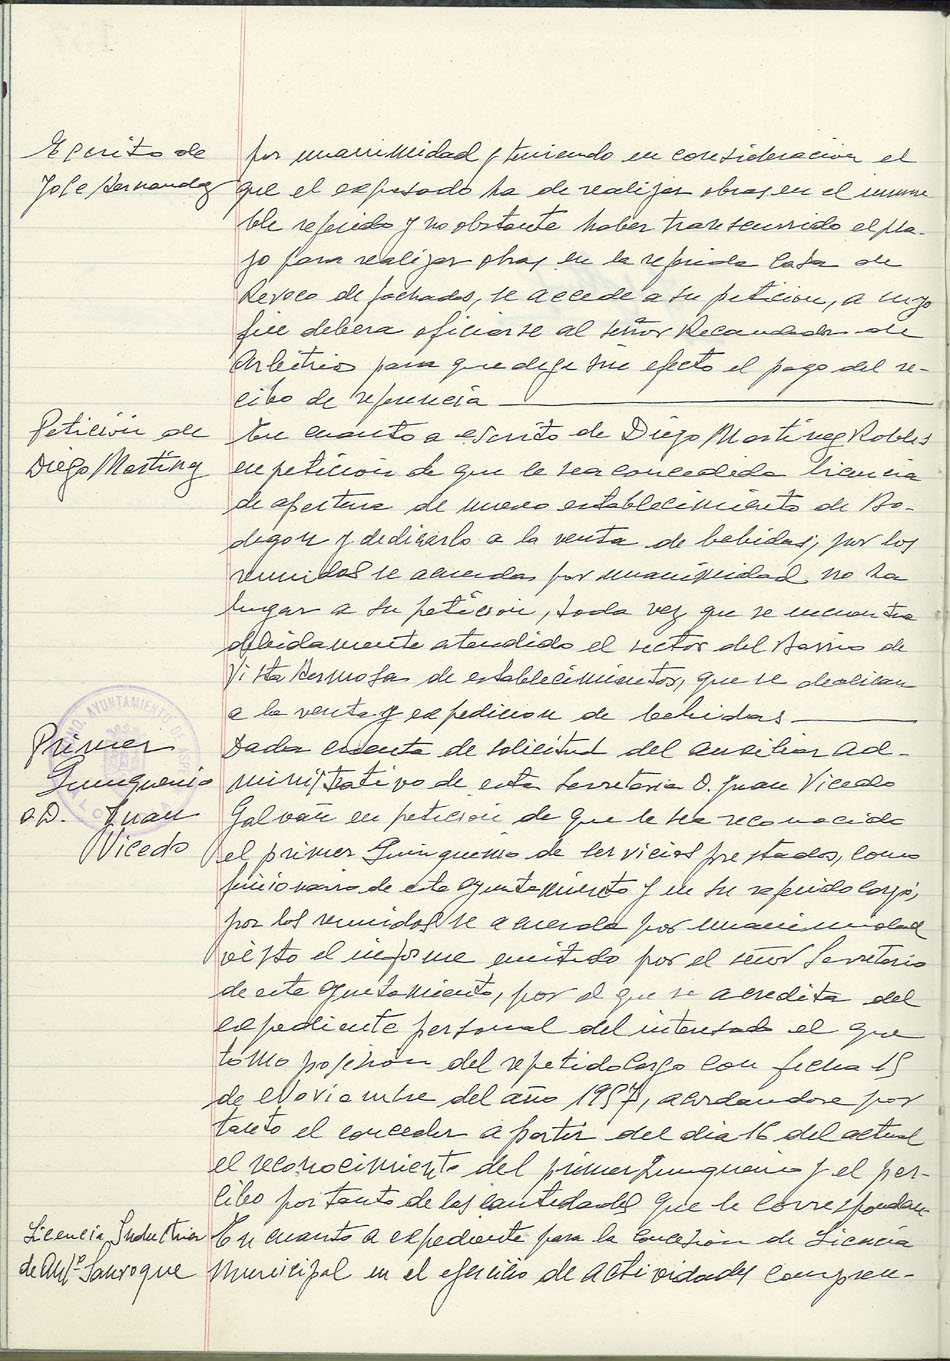 Escrito de
Jose Hernandez
por unanimidad y teniendo en consideracion el
que el expresado ha de realizar obras en el inmue
ble referido y no obstante haber transcurrido el pla-
zo para realizar obras en la referida Casa de
Revoco de fachadas, se accede a su peticion, a cuyo
fin debera oficiarse al señor Recaudador de
Arbitrios para que deje sin efecto el pago del re-
cibo de referencia
Petición de
Diego Martinez
En cuanto a escrito de Diego Martinez Robles
en petición de que le sea concedida licencia
de apertura de nuevo establecimiento de Bo-
degon y dedicarlo a la venta de bebidas, por los
reunidos se acuerda por unanimidad no ha
lugar a su petición, toda vez que se encuentra
debidamente atendido el sector del Barrio de
Vista Hermosa de establecimientos, que se dedican
a la venta y expedicion de bebidas
AYUNTAMIENTO DE
Primer
Quinquenio
a D. Juan
Vicedo
Dada cuenta de solicitud del auxiliar ad-
ministrativo de esta Secretaria D. Juan Vicedo
Galvañ en petición de que le sea reconocido
el primer Quinquenio de servicios prestados, como
funcionario de este Ayuntamiento y en su referido cargo,
por los reunidos se acuerda por unanimidad
visto el informe emitido por el señor Secretario
de este Ayuntamiento, por el que se acredita del
expediente personal del interesado el que
tomo posesion del repetido cargo con fecha 15
de Noviembre del año 1957, acordandose por
tanto el conceder a partir del dia 16 del actual
el reconocimiento del primer Quinquenio y el per-
cibo por tanto de las cantidades que le correspondan
Licencia Industrial
de Antº Sanroque
En cuanto a expediente para la concesión de Licencia
Municipal en el ejercicio de actividades compren-